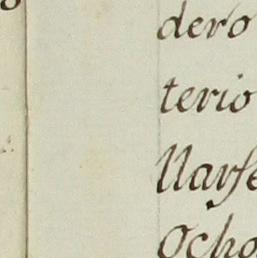 dero
terio
llarse
Ocho